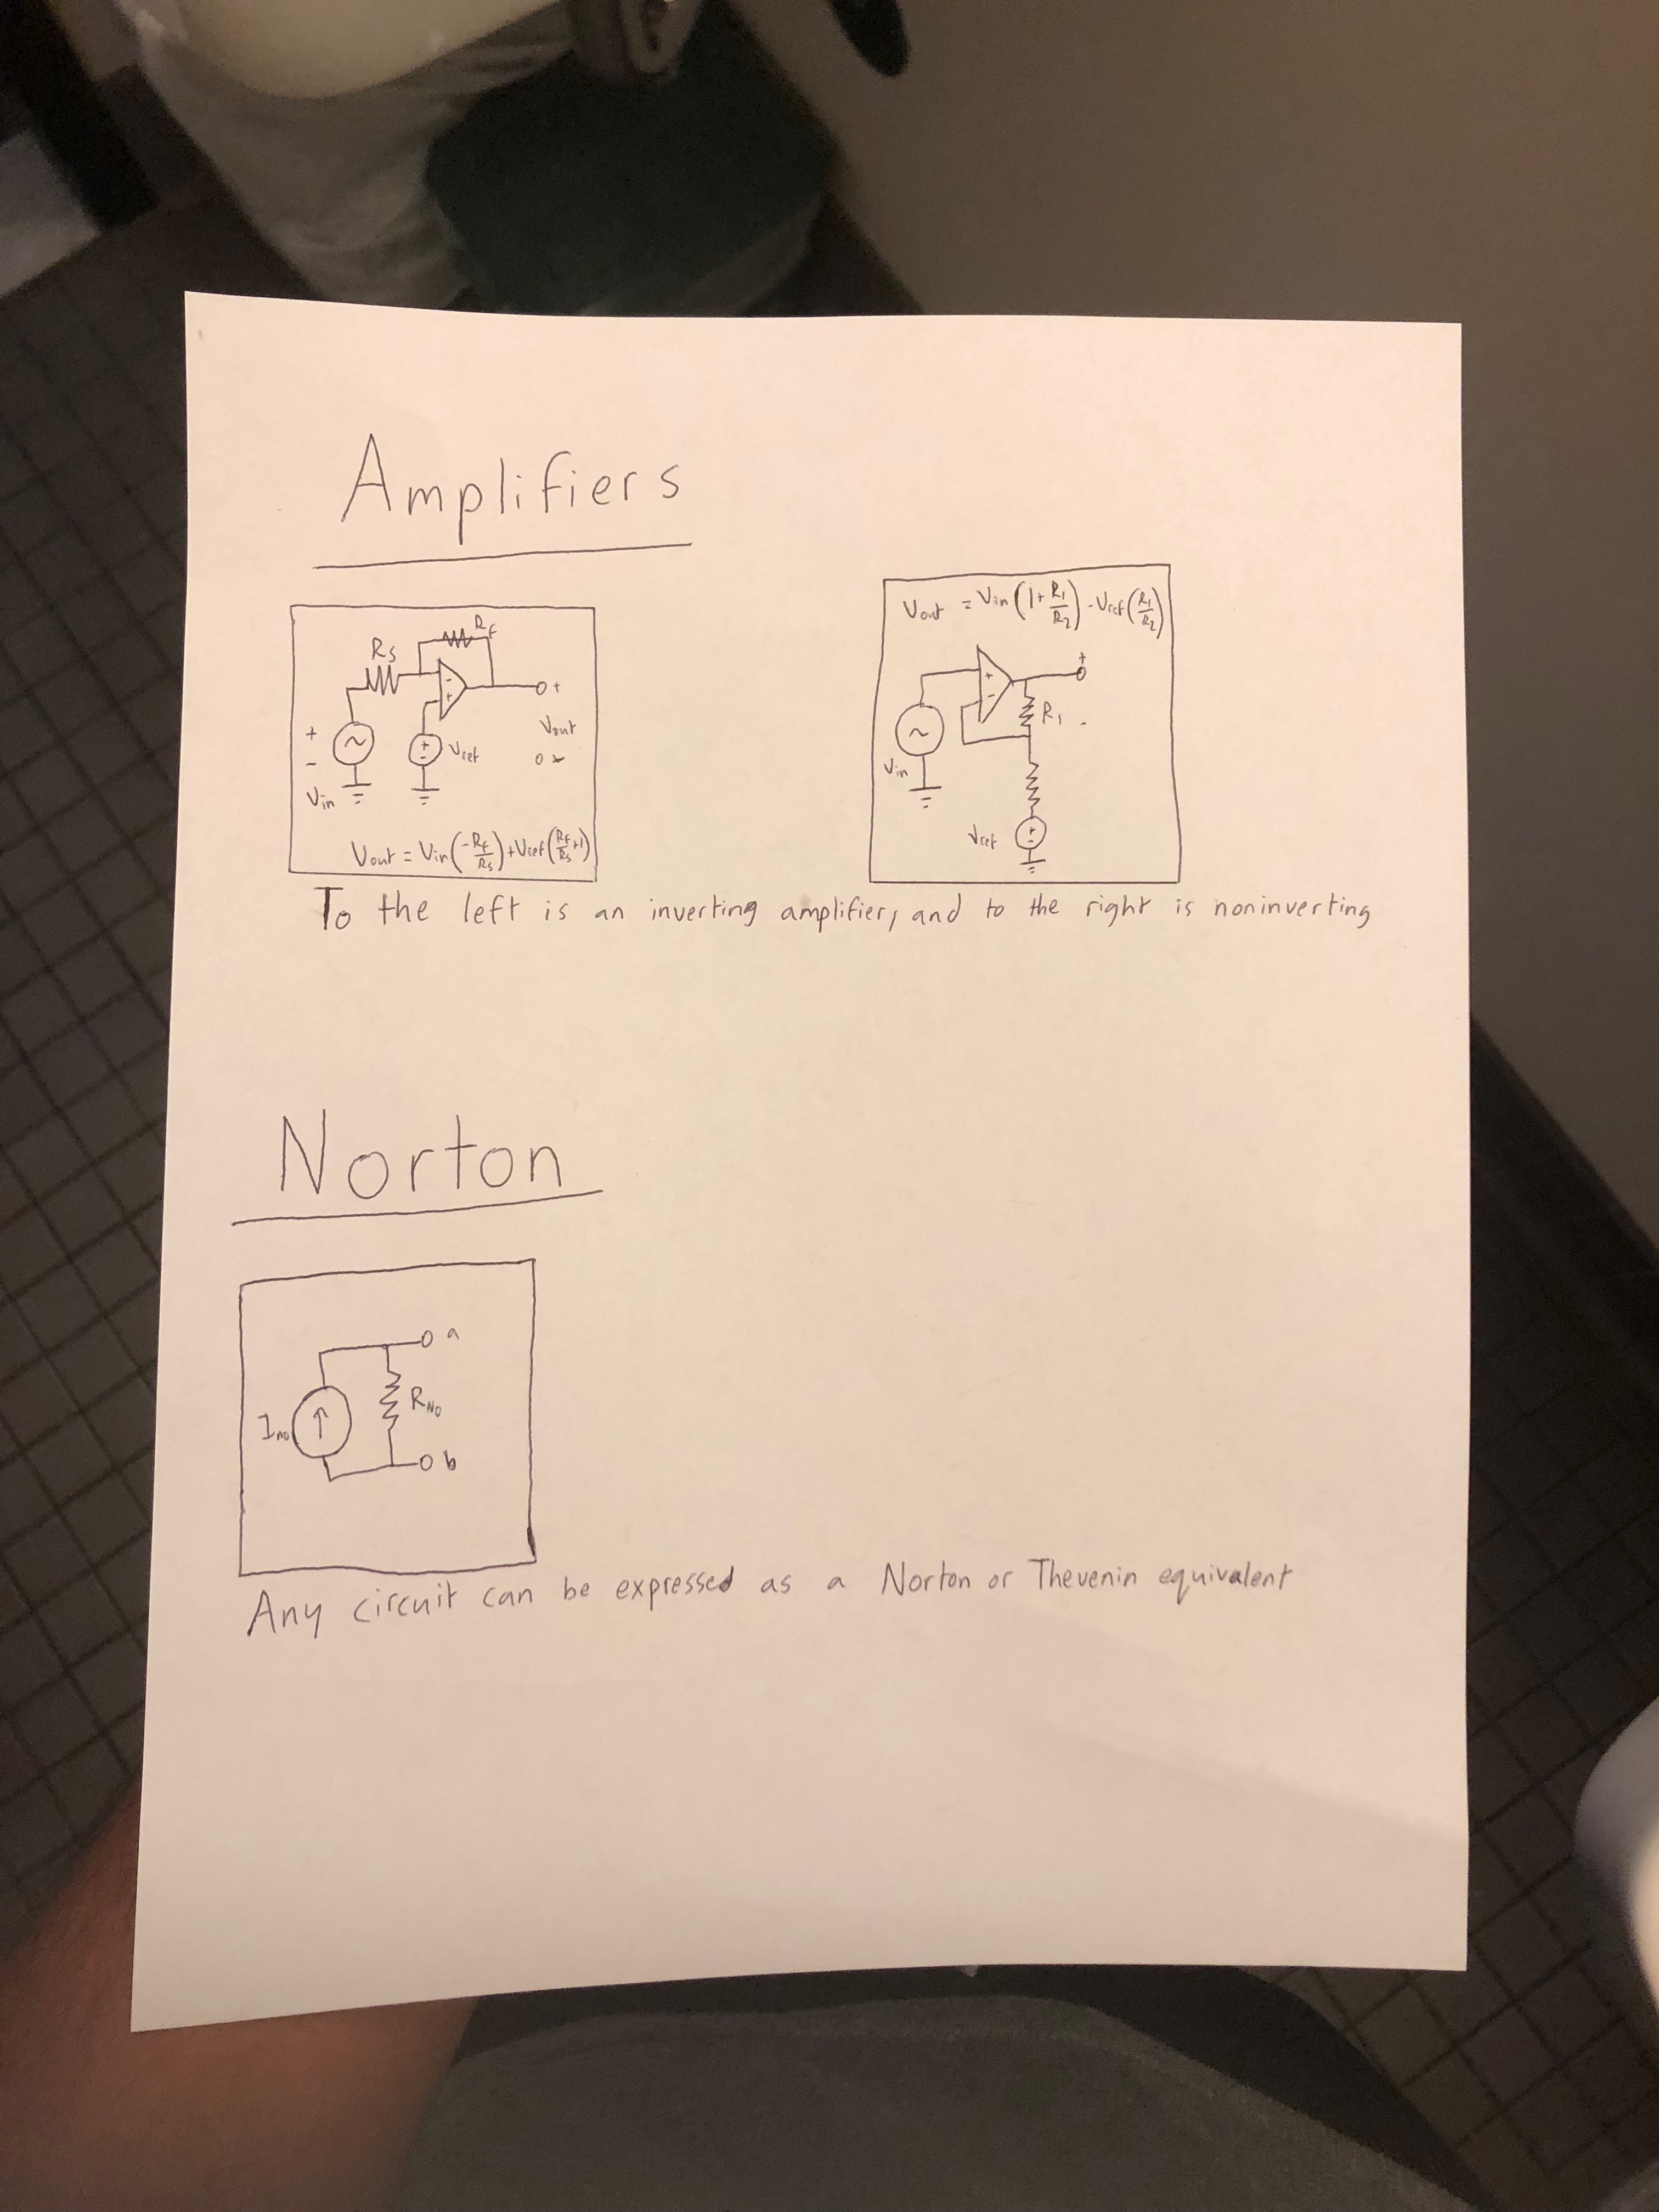 Amplifiers
Rf
Rs
-
+
+
+
-
Vin
+
-
Vref
Vout
Vout = Vin(-Rf/Rs)+Vref(Rf/Rs+1)
Vout = Vin(1+R1/R2)-Vref(R1/R2)
+
+
-
R1
-
Vin
Vref
+
-
To the left is an inverting amplifier, and to the right is noninverting
Norton
a
INO
RNO
b
Any circuit can be expressed as a Norton or Thevenin equivalent